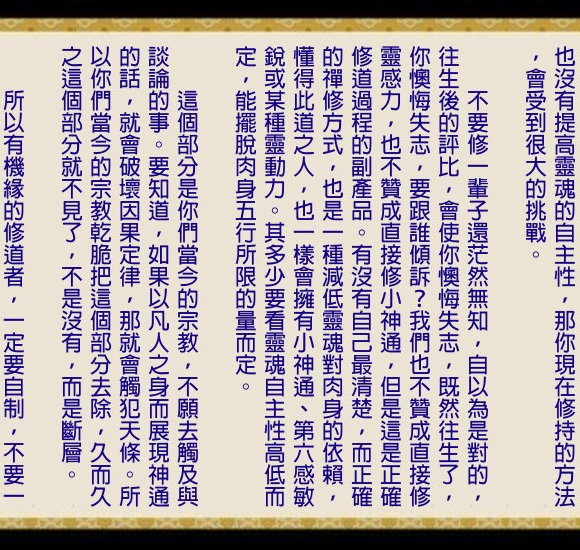 也沒有提高靈魂的自主性，那你現在修持的方法
，會受到很大的挑戰。
不要修一輩子還茫然無知，自以為是對的，
往生後的評比，會使你懊悔失志，既然往生了，
你懊悔失志，要跟誰傾訴？我們也不贊成直接修
靈感力，也不贊成直接修小神通，但是這是正確
修道過程的副產品。有沒有自己最清楚，而正確
的禪修方式，也是一種減低靈魂對肉身的依賴，
懂得此道之人，也一樣會擁有小神通、第六感敏
銳或某種靈動力。其多少要看靈魂自主性高低而
定，能擺脫肉身五行所限的量而定。
這個部分是你們當今的宗教，不願去觸及與
談論的事。要知道，如果以凡人之身而展現神通
的話，就會破壞因果定律，那就會觸犯天條。所
以你們當今的宗教乾脆把這個部分去除，久而久
之這個部分就不見了，不是沒有，而是斷層。
所以有機緣的修道者，一定要自制，不要一